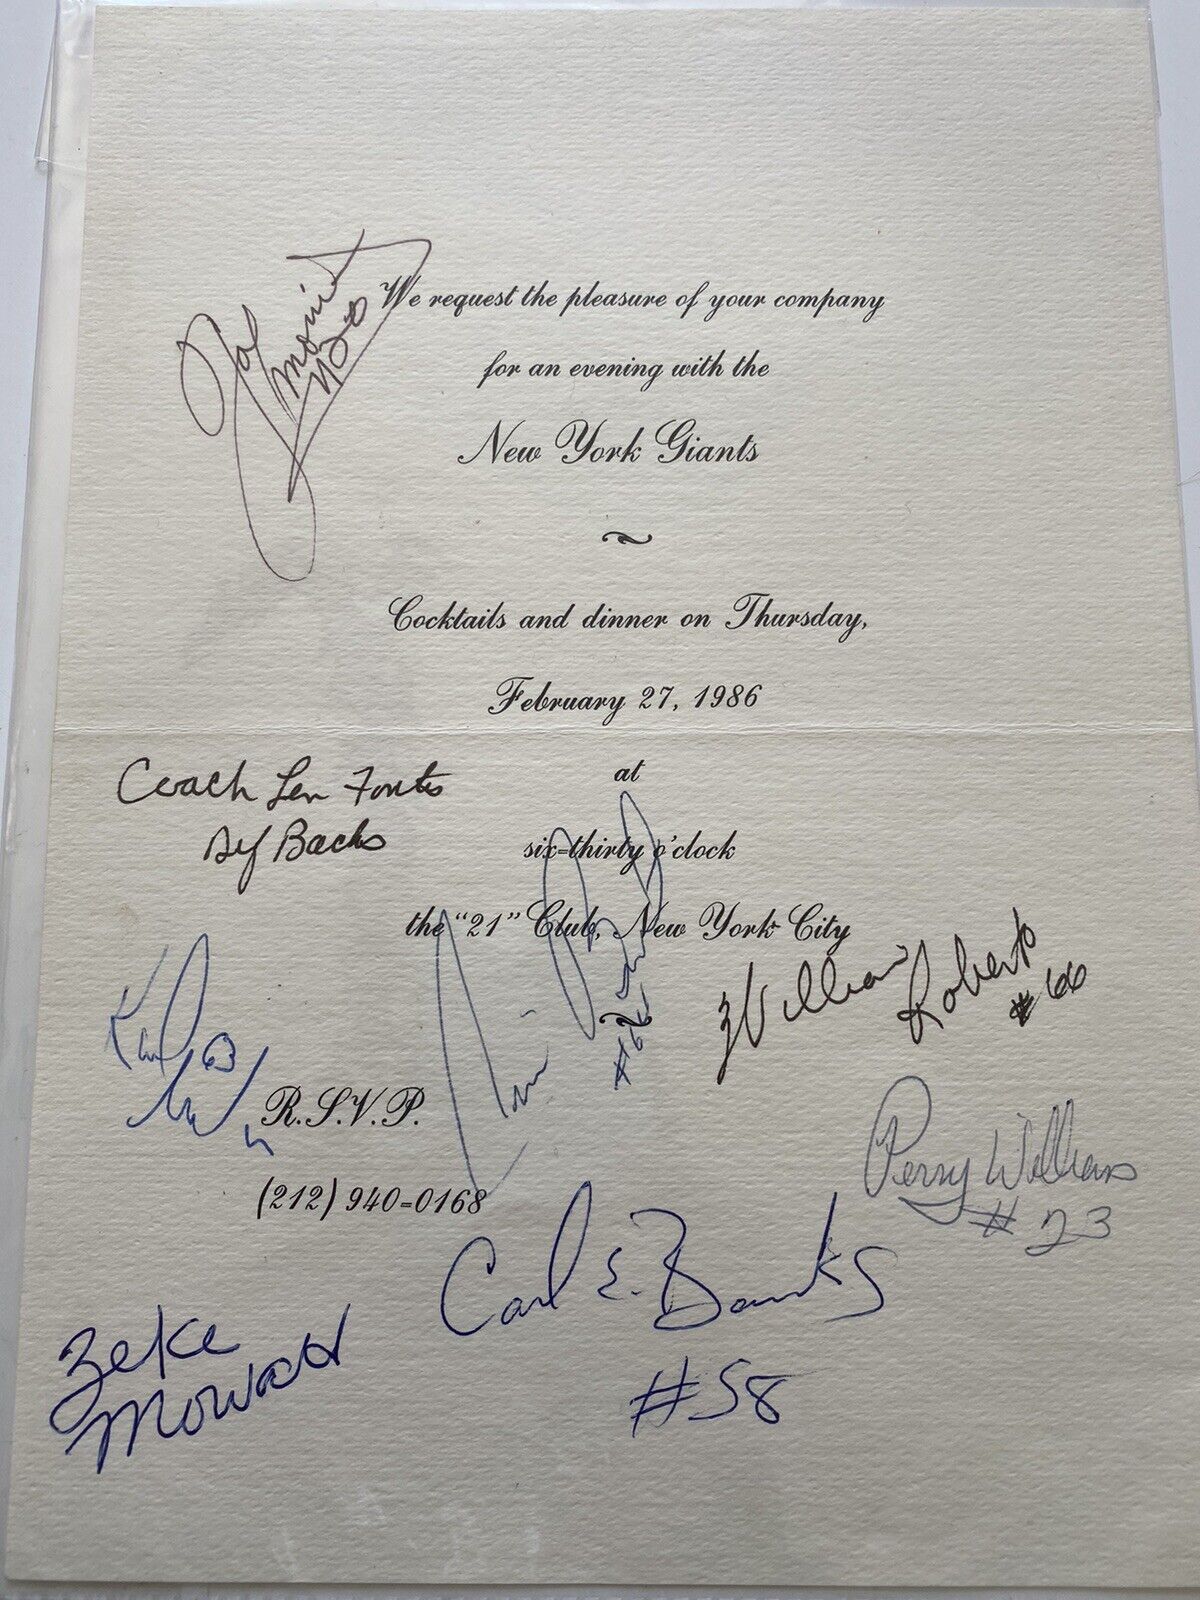 We request the pleasure of your company
for an evening with the
New York Giants
Joe
Morris
20
Cocktails and dinner on Thursday,
February 27, 1986
at
Coach Len Fontes
Def Backs
six-thirty o'clock
the "21" Club, New York City
William Roberts
#66
Karl
R.S.V.P.
(212) 940-0168
Perry Williams
#23
Carl E. Banks
#58
Zeke
Mowatt